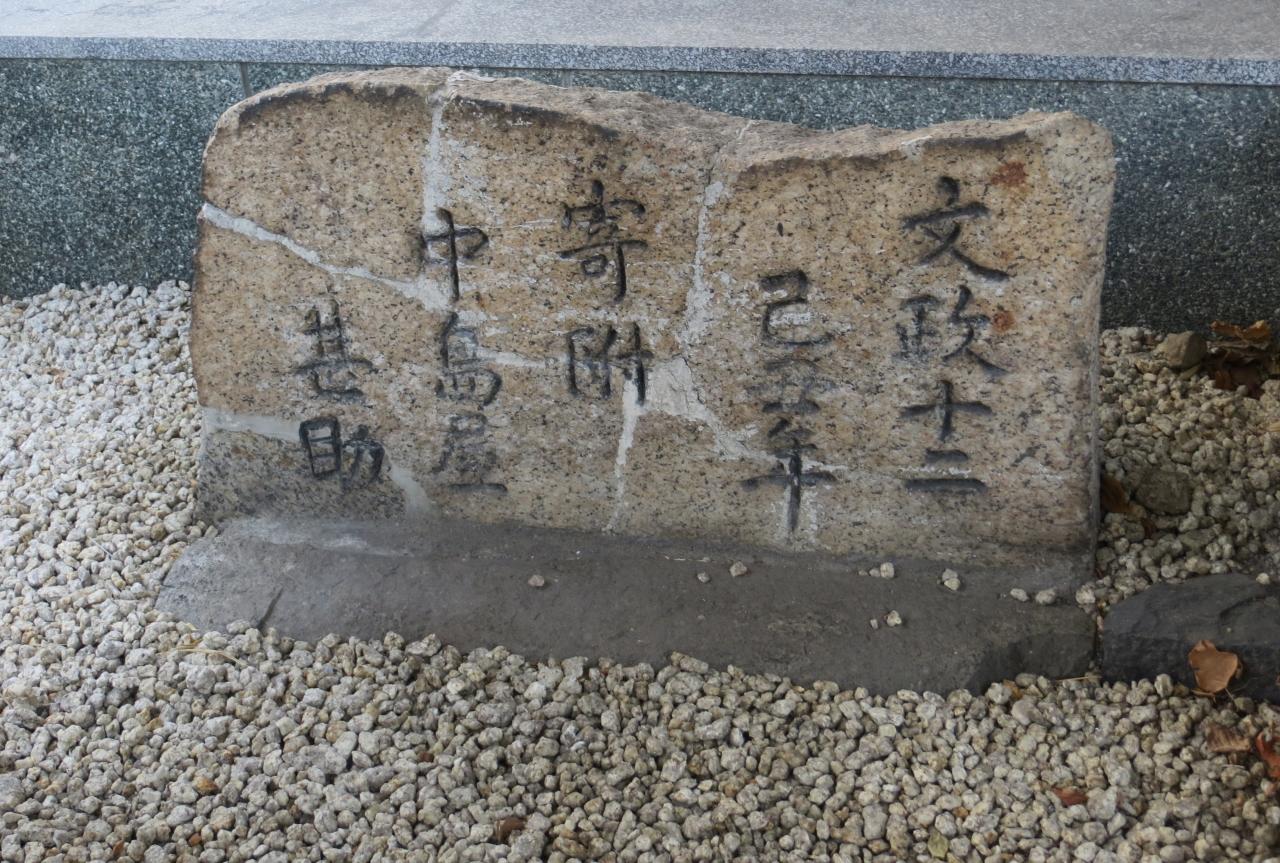 文政十二
己丑年
寄附
中島屋
甚助